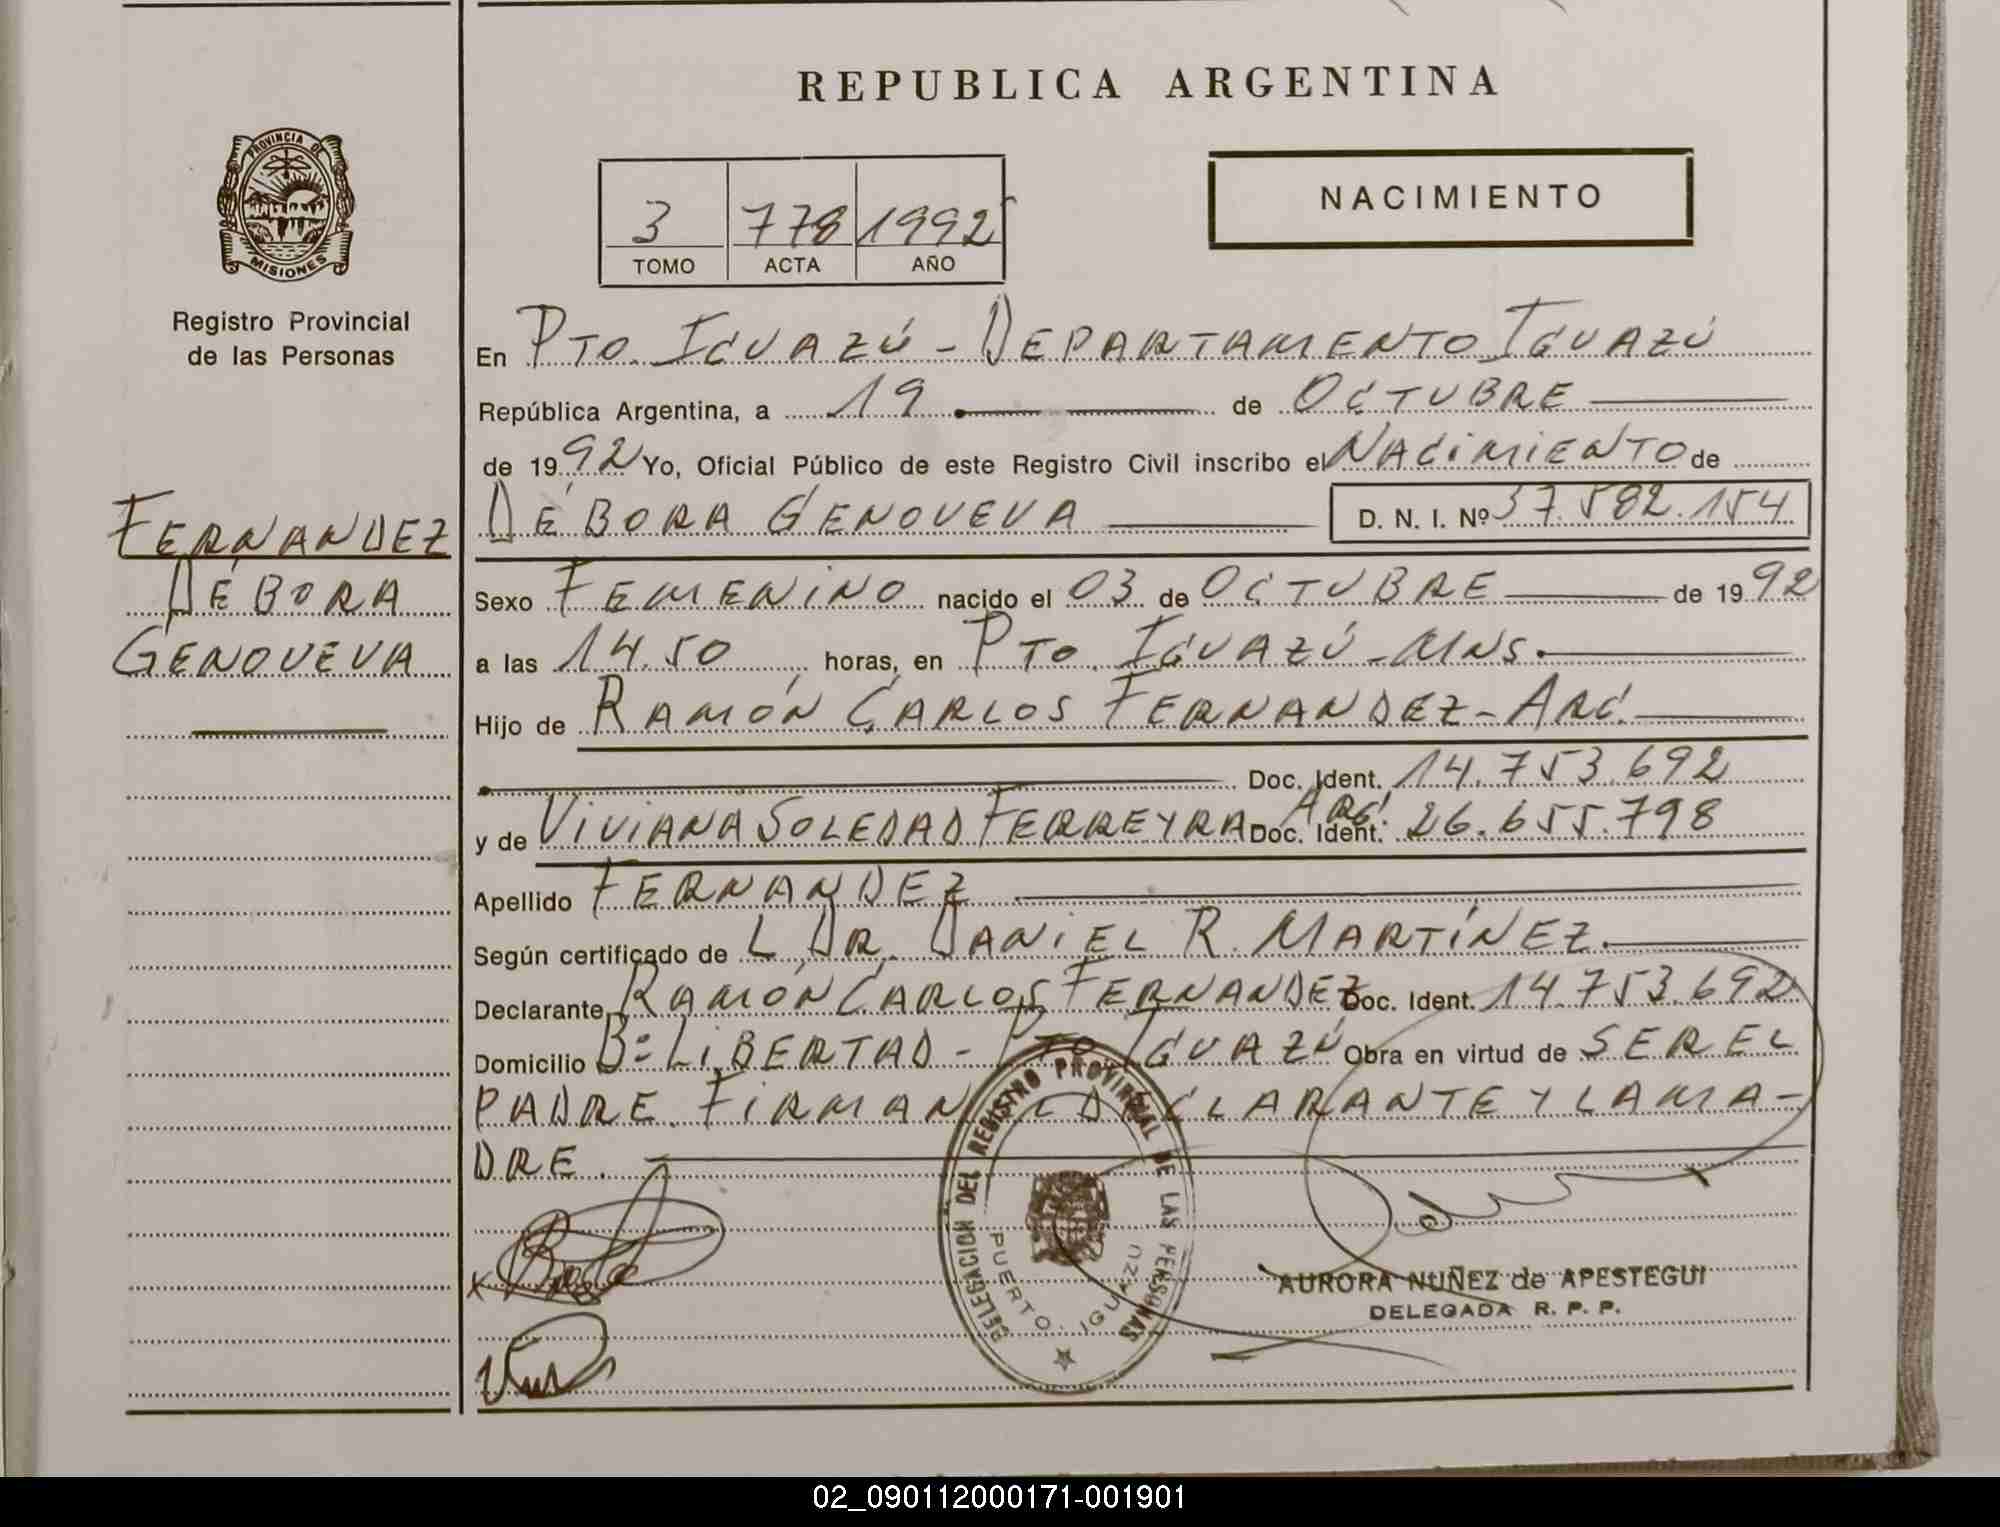 REPUBLICA ARGENTINA
PROVINCIA DE
MISIONES
Registro Provincial
de las Personas
NACIMIENTO
3 778 1992
TOMO ACTA AÑO
En PTO. IGUAZÚ - DEPARTAMENTO IGUAZÚ
República Argentina, a 19 de OCTUBRE
de 1992 Yo, Oficial Público de este Registro Civil inscribo el NACIMIENTO de
DÉBORA GENOVEVA D. N. I. Nº 37.582.154
FERNANDEZ
DÉBORA
GENOVEVA
Sexo FEMENINO nacido el 03 de OCTUBRE de 1992
a las 14.50 horas, en PTO. IGUAZÚ - MNS.
Hijo de RAMÓN CARLOS FERNANDEZ - ARG.
Doc. Ident. 14.753.692
y de VIVIANA SOLEDAD FERREYRA ARG. Doc. Ident. 26.655.798
Apellido FERNANDEZ
Según certificado de L DR. DANIEL R. MARTÍNEZ.
Declarante RAMÓN CARLOS FERNANDEZ Doc. Ident. 14.753.692
Domicilio Bº LIBERTAD - PTO IGUAZÚ Obra en virtud de SER EL
PADRE. FIRMAN EL DECLARANTE Y LA MA-
DRE.
DELEGACION DEL REGISTRO PROVINCIAL DE LAS PERSONAS
PUERTO IGUAZU
AURORA NUÑEZ de APESTEGUI
DELEGADA R. P. P.
02_090112000171-001901